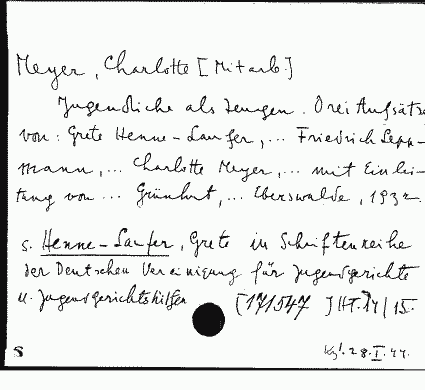 Meyer, Charlotte [Mitarb.]
Jugendliche als Zeugen. Drei Aufsätze
von: Grete Henne-Laufer, ... Friedrich Lepp-
mann, ... Charlotte Meyer, ... mit Einlei-
tung von ... Grünhut, ... Eberswalde, 1932
s. Henne-Laufer, Grete in Schriftenreihe
der Deutschen Vereinigung für Jugendgerichte
u. Jugendgerichtshilfen [171547 ] HT. 14/15.
S
28.I.44.